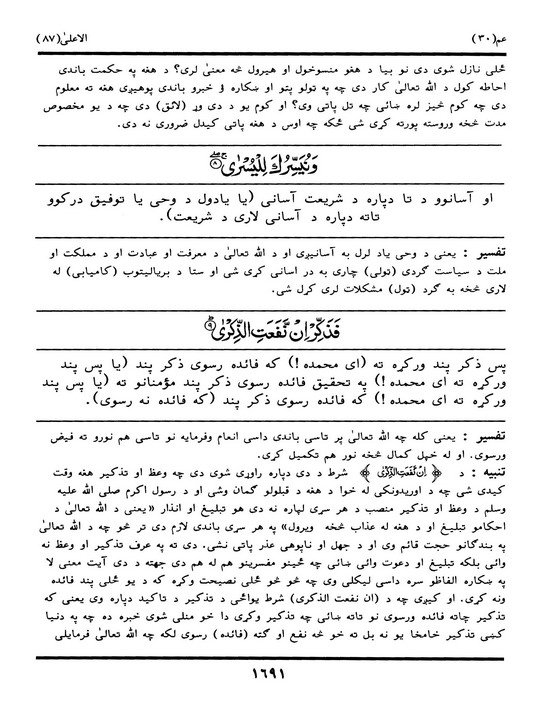 عم(٣٠) الاعلیٰ(٨٧)
ځلی نازل شوی دی نو بیا د هغو منسوخول او هیرول څه معنیٰ لری؟ د هغه په حکمت باندی
احاطه کول د الله تعالیٰ کار دی چه په تولو پټو او ښکاره ؤ خبرو باندی پوهیږی هغه ته معلوم
دی چه کوم څیز لره ښائی چه تل پاتی وی؟ او کوم یو د دی وړ (لائق) دی چه د یو مخصوص
مدت څخه وروسته پورته کړی شی ځکه چه اوس د هغه پاتی کیدل ضروری نه دی.
وَنُيَسِّرُكَ لِلْيُسْرٰى ۝٨
او آسانوو د تا دپاره د شریعت آسانی (یا یادول د وحی یا توفیق درکوو
تاته دپاره د آسانی لاری د شریعت).
تفسیر : یعنی د وحی یاد لرل به آسانیږی او د الله تعالیٰ د معرفت او عبادت او د مملکت او
ملت د سیاست گردی (تولی) چاری به در اسانی کړی شی او ستا د بریالیتوب (کامیابی) له
لاری څخه به گرد (تول) مشکلات لری کړل شی.
فَذَكِّرْ اِنْ نَّفَعَتِ الذِّكْرٰى ۝٩
پس ذکر پند ورکړه ته (ای محمده !) که فائده رسوی ذکر پند (یا پس پند
ورکړه ته ای محمده !) په تحقیق فائده رسوی ذکر پند مؤمنانو ته (یا پس پند
ورکړه ته ای محمده !) که فائده رسوی ذکر پند (که فائده نه رسوی).
تفسیر : یعنی کله چه الله تعالیٰ پر تاسی باندی داسی انعام وفرمایه نو تاسی هم نورو ته فیض
ورسوی. او له خپل کمال څخه نور هم تکمیل کړی.
تنبیه : د ﴿ اِنْ نَّفَعَتِ الذِّكْرٰى ﴾ شرط د دی دپاره راوړی شوی دی چه وعظ او تذکیر هغه وقت
کیدی شی چه د اوریدونکی له خوا د هغه د قبلولو گمان وشی او د رسول اکرم صلی الله علیه
وسلم د وعظ او تذکیر منصب د هر سری لپاره نه دی هو تبلیغ او انذار «یعنی د الله تعالیٰ د
احکامو تبلیغ او د هغه له عذاب څخه ویرول» په هر سری باندی لازم دی تر څو چه د الله تعالیٰ
په بندگانو حجت قائم وی او د جهل او ناپوهی عذر پاتی نشی. دی ته په عرف تذکیر او وعظ نه
وائی بلکه تبلیغ او دعوت وائی ښائی چه ځینو مفسرینو هم له هم دی جهته د دی آیت معنی لا
په ښکاره الفاظو سره داسی لیکلی وی چه څو څو ځلی نصیحت وکړه که د یو ځلی پند فائده
ونه کړی. او کیږی چه د (ان نفعت الذکری) شرط یواځی د تذکیر د تاکید دپاره وی یعنی که
تذکیر چاته فائده ورسوی نو تاته ښائی چه تذکیر وکړی دا خو منلی شوی خبره ده چه په دنیا
کښی تذکیر خامخا یو نه بل ته خو څه نفع او گټه (فائده) رسوی لکه چه الله تعالیٰ فرمایلی
١٦٩١